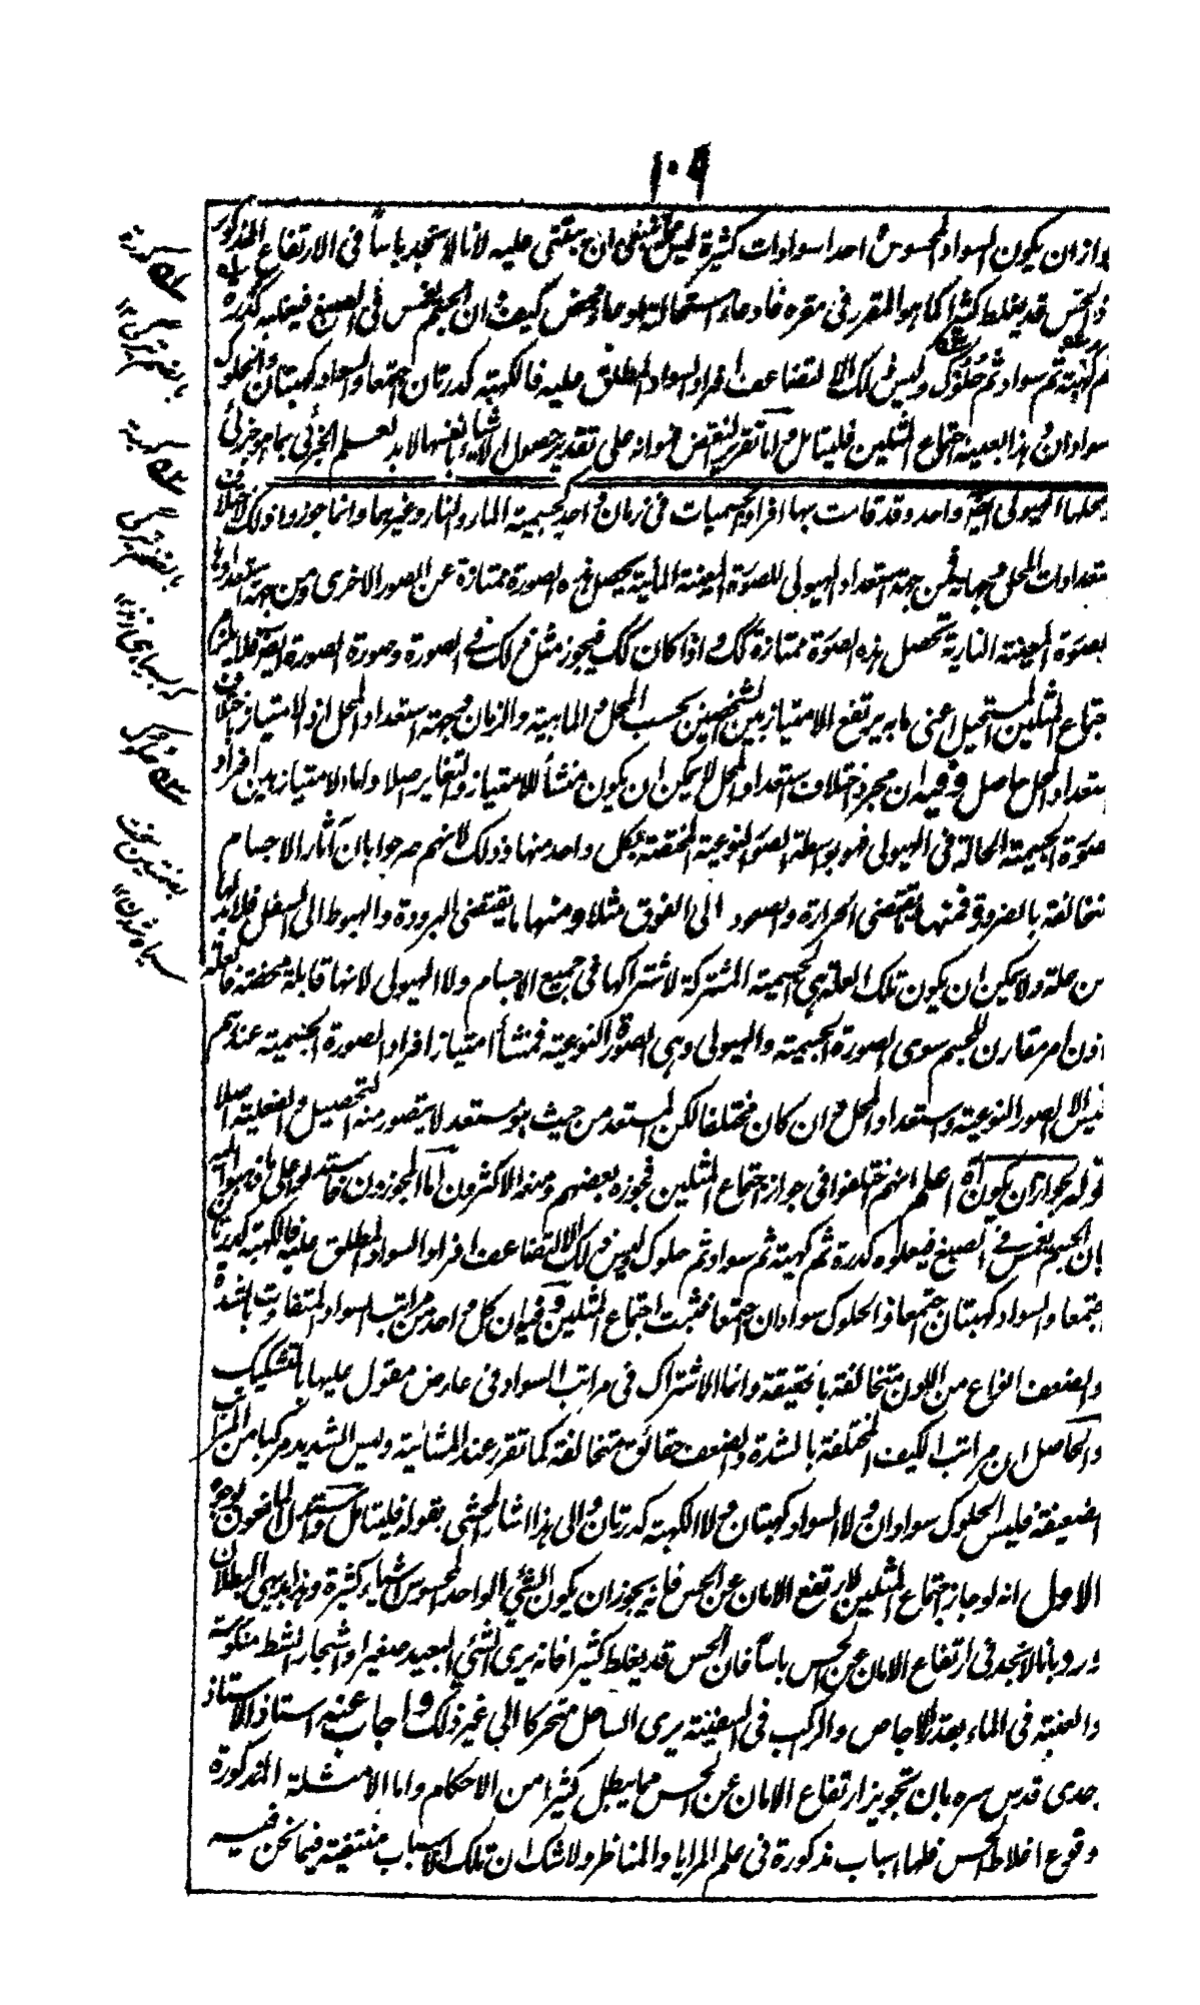 ١٠٩
واز ان يكون السواد المحسوس احدا سوادات كثيرة ليس ينبغى ان يعتنى عليه لانا لا نستجد باسا فى الارتفاع المذكور
فالحس قد يغلط كثيرا كما هو المقرر فى مقره فادعاء استحالته ادعاء محض كيف وان الجسم يغمس فى الصبغ فيعلوه كدرة
ثم كهبة ثم سواد ثم حلوك وليس ذلك الا لتضاعف افراد السواد المطلق عليه فالكهبة كدرتان اجتمعا والسواد كهبتان والحلوك
سوادان وهذا بعينه اجتماع المثلين فليتامل واما تقرير النقض فهو انه على تقدير حصول الاشياء بانفسها لابد لعلم الجزئى بما هو جزئى
ومحلها الهيولى واحد وقد قامت بها افراد الجسميات فى زمان واحد كجسمية الماء والنار وغيرهما وانما جوزوا ذلك لاختلاف
استعدادات المحل وجهاته فمن جهة استعداد الهيولى للصورة المعينة المائية يحصل هذه الصورة ممتازة عن الصور الاخرى ومن جهة استعدادها
لصورة المعينة النارية تحصل هذه الصورة ممتازة كك واذا كان كك فيجوز مثل ذلك فى الصورة وصورة الصورة ايضا فلا يلزم
اجتماع المثلين المستحيل اعنى ما به يرتفع الامتياز بين الشخصين بحسب المحل والماهية والزمان وجهة استعداد المحل اذ الامتياز باختلاف
استعداد المحل حاصل وفيه ان مجرد اختلاف استعداد المحل لا يمكن ان يكون منشأ للامتياز والتغاير اصلا واما الامتياز بين افراد
صورة الجسمية الحالة فى الهيولى فهو بواسطة الصور النوعية المختصة بكل واحد منها وذلك لانهم صرحوا بان آثار الاجسام
متخالفة بالضرورة فمنها ما يقتضى الحرارة والصعود الى الفوق مثلا ومنها ما يقتضى البرودة والهبوط الى السفل فلا بد لها
من علة ولا يمكن ان يكون تلك العلة هى الجسمية المشتركة لاشتراكها فى جميع الاجسام ولا الهيولى لانها قابلة محضة فالعلة
اذن امر مقارن للجسم سوى الصورة الجسمية والهيولى وهى الصورة النوعية فمنشأ امتياز افراد الصورة الجسمية عندهم
ليس الا الصور النوعية واستعداد المحل وان كان مختلفا لكن المستعد من حيث هو مستعد لا يتصور منه التحصيل والفعلية اصلا
قوله لجواز ان يكون آه اعلم انهم اختلفوا فى جواز اجتماع المثلين فجوزه بعضهم ومنعه الاكثرون اما المجوزون فاستدلوا على ما ذهبوا اليه
بان الجسم يغمس فى الصبغ فيعلوه كدرة ثم كهبة ثم سواد ثم حلوك وليس ذلك الا لتضاعف افراد السواد المطلق عليه فالكهبة كدرتان
اجتمعا والسواد كهبتان اجتمعا والحلوك سوادان اجتمعا فثبت اجتماع المثلين وفيه ان كل واحد من مراتب السواد المتفاوت بالشدة
والضعف انواع من اللون متخالفة بالحقيقة وانما الاشتراك فى مراتب السواد فى عارض مقول عليها بالتشكيك
والحاصل ان مراتب الكيف المختلفة بالشدة والضعف حقائق متخالفة كما تقرر عند المشائية وليس الشديد مركبا من المراتب
الضعيفة فليس الحلوك سوادان ولا السواد كهبتان ولا الكهبة كدرتان والى هذا اشار المحشى بقوله فليتامل واستدل المانعون بوجوه
الاول انه لو جاز اجتماع المثلين لارتفع الامان عن الحس فانه يجوز ان يكون الشئ الواحد المحسوس اشياء كثيرة وهذا بديهى البطلان
ورد بانا لا نجد فى ارتفاع الامان عن الحس باسا فان الحس قد يغلط كثيرا فانه يرى الشئ البعيد صغيرا واشجار الشط منكوسة
والعنبة فى الماء بعد الاجاص والراكب فى السفينة يرى الساحل متحركا الى غير ذلك واجاب عنه استاذ الاستاذ
جدى قدس سره بان تجويز ارتفاع الامان عن الحس مما يبطل كثيرا من الاحكام واما الامثلة المذكورة
وقوع اغلاط الحس فلها اسباب مذكورة فى علم المرايا والمناظر ولا شك ان تلك الاسباب منتفية فيما نحن فيه
كدرة
بالضم تيرگى ١٢
كهبة
بالضم تيرگى
كه بسياهى زند ١٢
حلوك
بضمتين سخت
سياه شدن ١٢